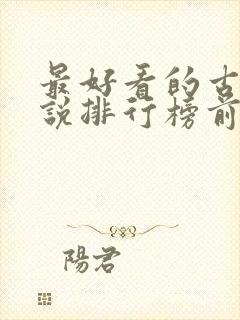 最好看的古
說排行榜前
陽君